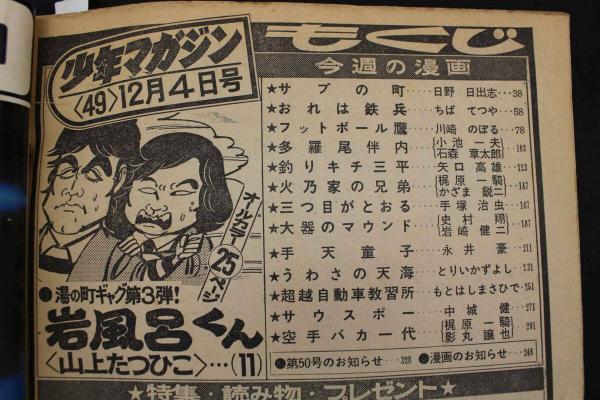 少年マガジン
〈49〉12月4日号
オールカラー25ページ
●湯の町ギャグ第3弾!
岩風呂くん
〈山上たつひこ〉…(11)
もくじ
今週の漫画
★サブの町 日野 日出志…38
★おれは鉄兵 ちば てつや…58
★フットボール鷹 川崎 のぼる…78
★多羅尾伴内 {小池 一夫 石森 章太郎}103
★釣りキチ三平 矢口 高雄…123
★火乃家の兄弟 {梶原 一騎 かざま 鋭二}147
★三つ目がとおる 手塚 治虫…167
★大器のマウンド {史村 翔 岩崎 健二}187
★手天童子 永井 豪…211
★うわさの天海 とりいかずよし…231
★超越自動車教習所 もとはしまさひで…251
★サウスポー 中城 健…271
★空手バカ一代 {梶原 一騎 影丸 譲也}291
●第50号のお知らせ…328 ●漫画のお知らせ…246
★特集・読み物・プレゼント★